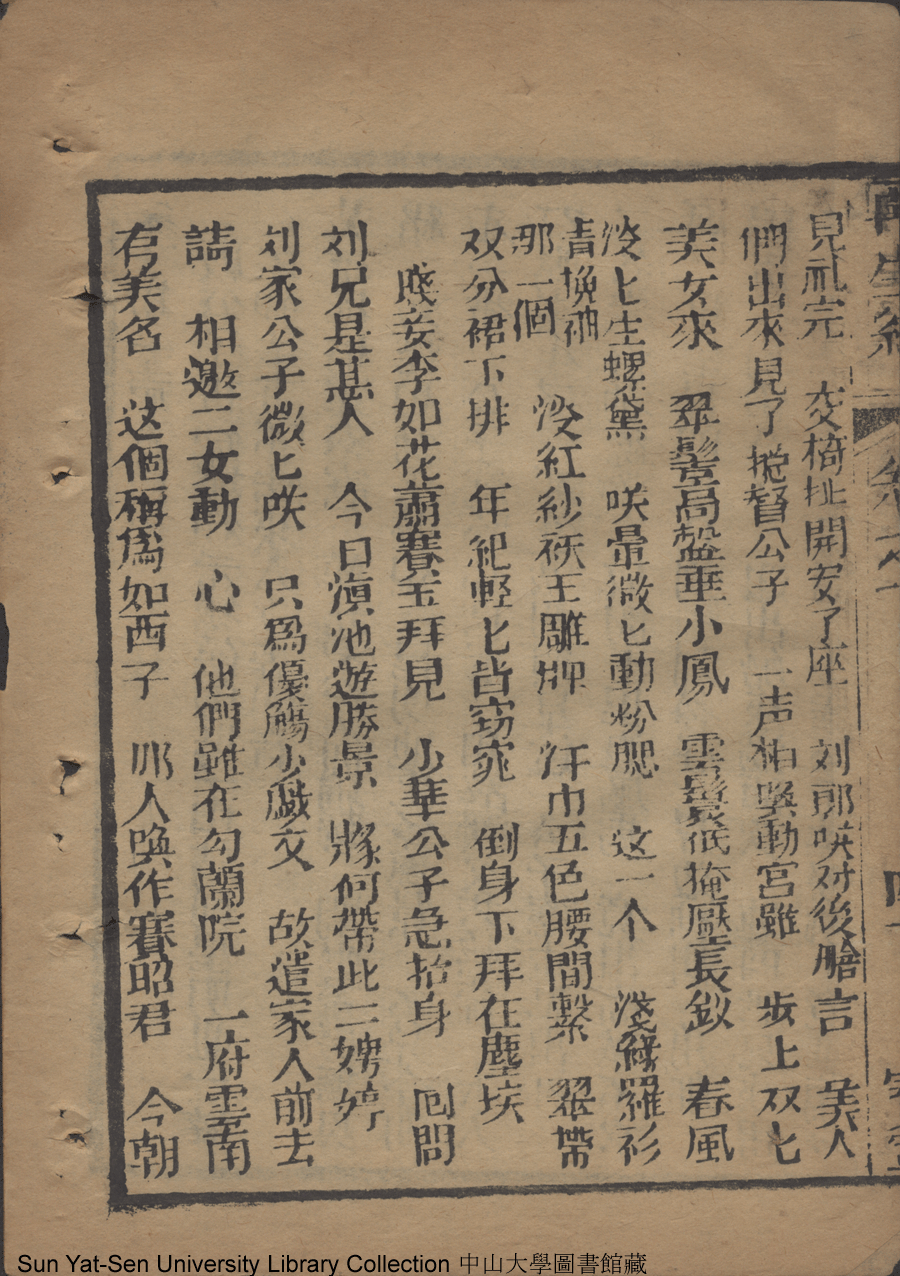 見礼完　交椅扯開安了座　刘郎咲对後艙言　美人
們出來見了揔督公子　一声相喚動宮雖　步上双匕
美女來　翠髻高盤垂小鳳　雲鬓低掩壓長釵　春風
淡匕生螺黛　咲暈微匕動粉腮　这一个　淺綠羅衫
青挽袖
那一個　淡紅紗袄玉雕牌　汗巾五色腰間繫　翠帶
双分裙下排　年紀軽匕皆窈窕　倒身下拜在塵埃
賤妾李如花蕭賽玉拜見　小華公子急抬身　囘問
刘兄是甚人　今日滇池遊勝景　將何帶此二娉婷
刘家公子微匕咲　只爲優觴少戲文　故遣家人前去
請　相邀二女動　心　他們雖在勾蘭院　一府雲南
有美名　这個稱爲如西子　那人喚作賽昭君　今朝
Sun Yat-Sen University Library Collection 中山大學圖書館藏